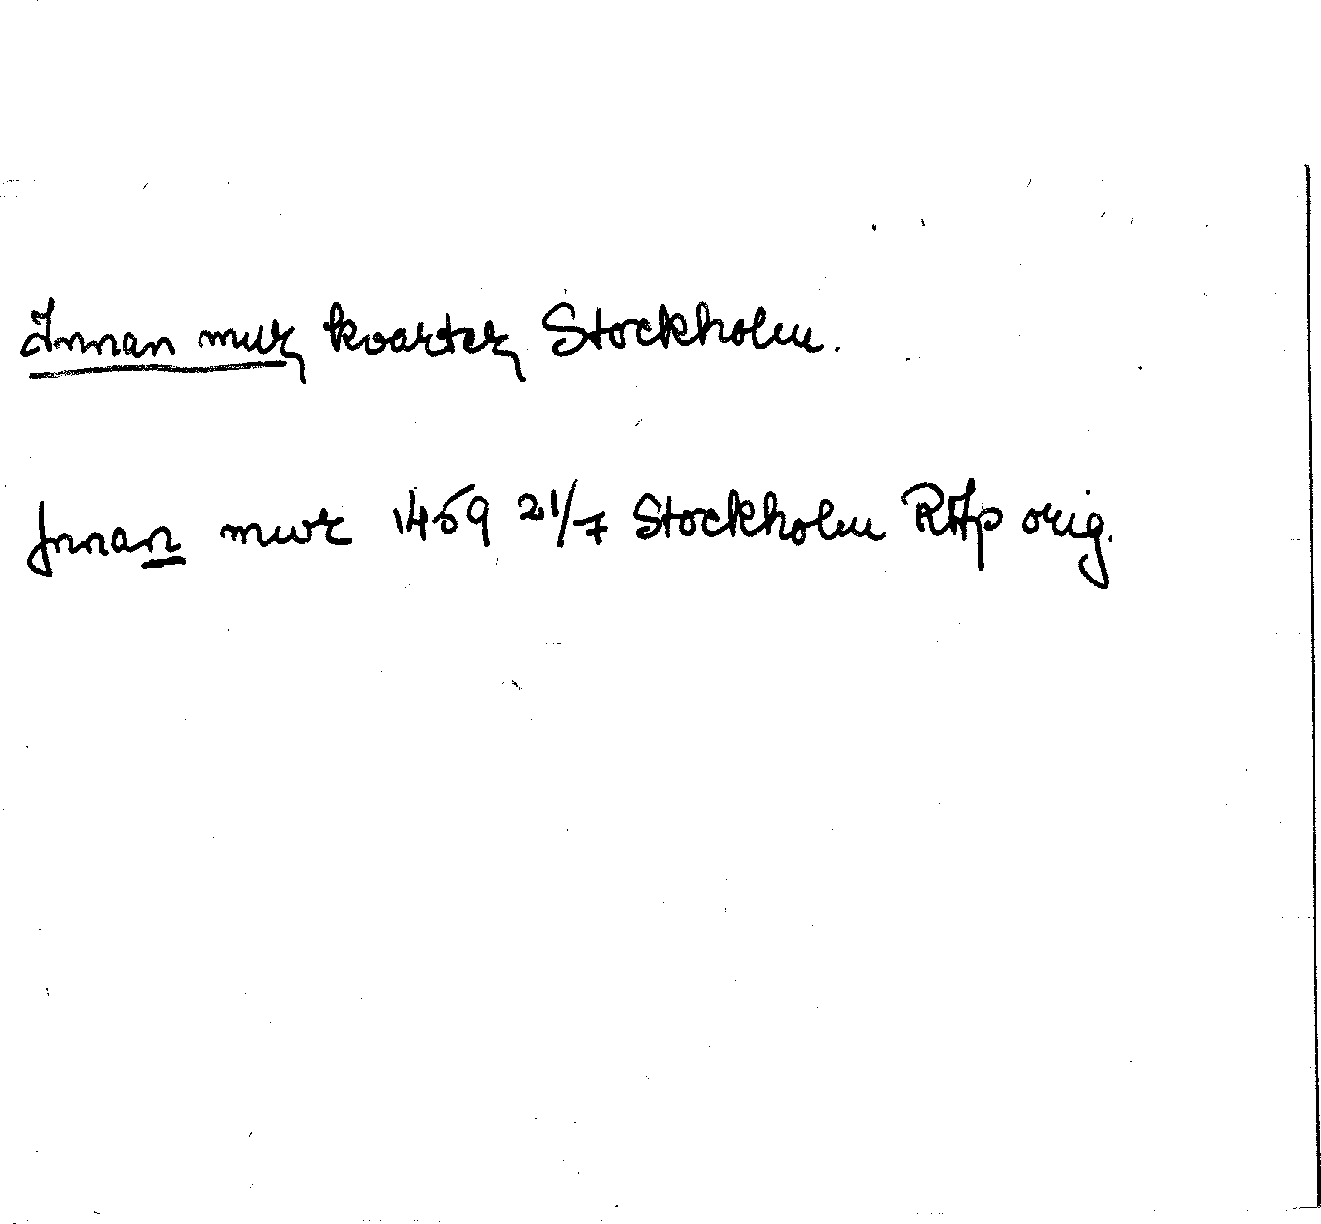 Innan mur, kvarter, Stockholm.
Jnnan mwr 1459 21/7 Stockholm RAp orig.